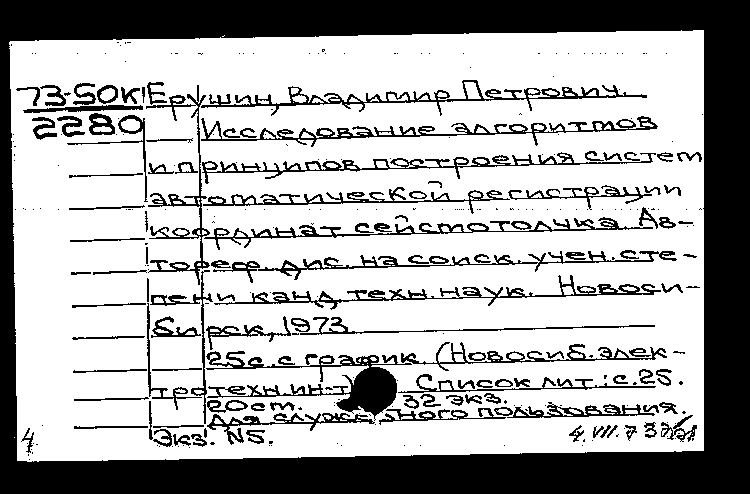 73-50к Ерушин, Владимир Петрович.
2280 Исследование алгоритмов
и принципов построения систем
автоматической регистрации
координат сейсмотолчка. Ав-
тореф. дис. на соиск. учен. сте-
пени канд. техн. наук. Новоси-
бирск, 1973.
25с. с график. (Новосиб. элек-
тротехн. ин-т) Список лит.: с.25.
20см. 32 экз.
Для служебного пользования.
Экз. №5.
4 4.VII.73